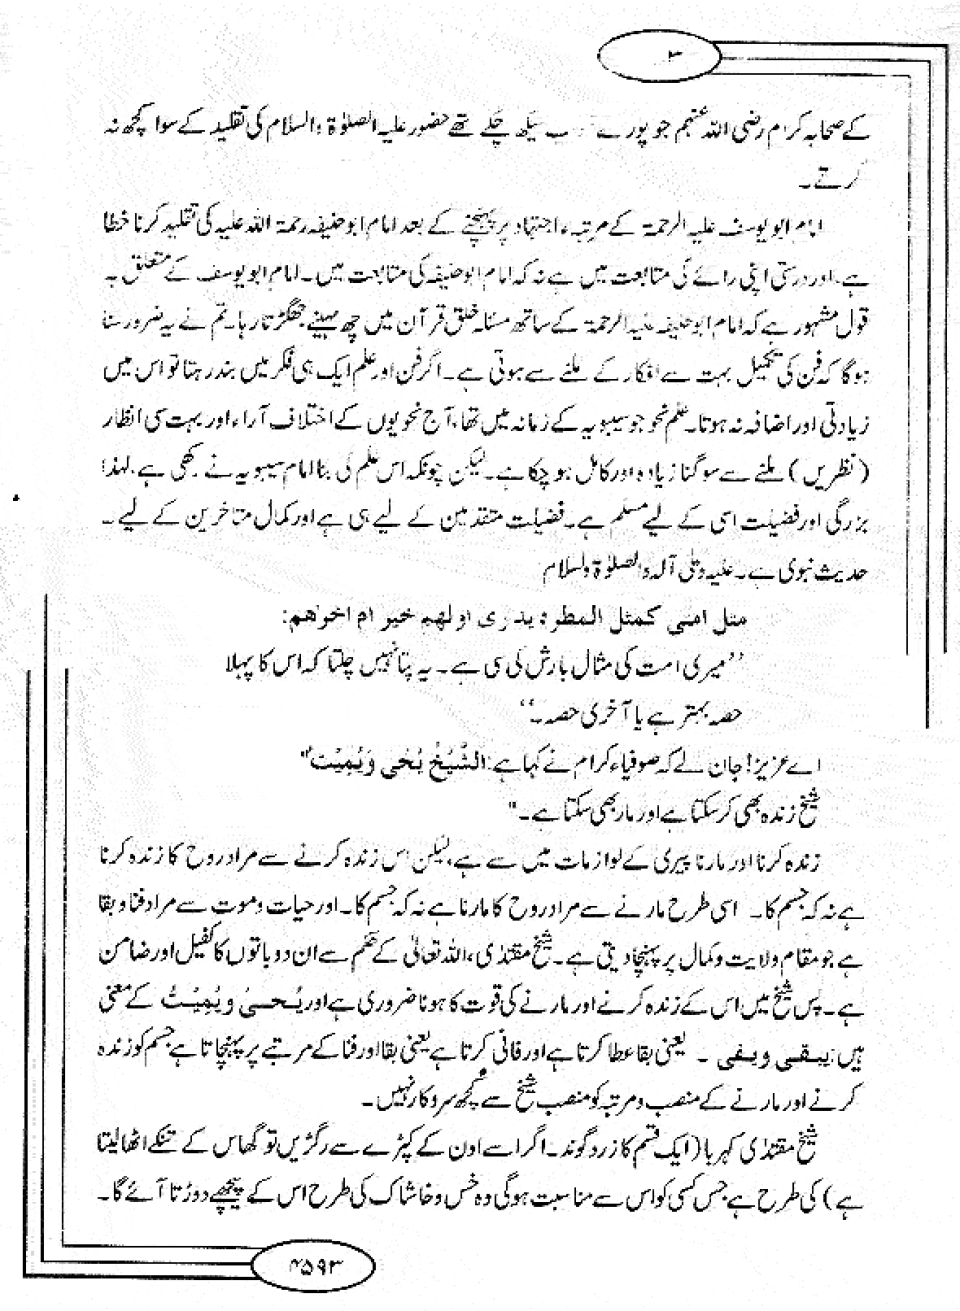 ۳
کے صحابہ کرام رضی اللہ عنہم جو پورے سیکھ چکے تھے حضور علیہ الصلوٰۃ والسلام کی تقلید کے سوا کچھ نہ
کرتے۔
امام ابو یوسف علیہ الرحمۃ کے مرتبہء اجتہاد پر پہنچنے کے بعد امام ابو حنیفہ رحمۃ اللہ علیہ کی تقلید کرنا خطا
ہے اور درستی اپنی رائے کی متابعت میں ہے نہ کہ امام ابو حنیفہ کی متابعت میں۔ امام ابو یوسف کے متعلق یہ
قول مشہور ہے کہ امام ابو حنیفہ علیہ الرحمۃ کے ساتھ مسئلہ خلق قرآن میں چھ مہینے جھگڑتا رہا۔ تم نے یہ ضرور سنا
ہوگا کہ فن کی تکمیل بہت سے افکار کے ملنے سے ہوتی ہے۔ اگر فن اور علم ایک ہی فکر میں بند رہتا تو اس میں
زیادتی اور اضافہ نہ ہوتا۔ علم نحو جو سیبویہ کے زمانہ میں تھا، آج نحویوں کے اختلاف آراء اور بہت سی انظار
(نظریں) ملنے سے سو گنا زیادہ اور کامل ہو چکا ہے۔ لیکن چونکہ اس علم کی بنا امام سیبویہ نے رکھی ہے، لہٰذا
بزرگی اور فضیلت اسی کے لیے مسلم ہے۔ فضیلت متقدمین کے لیے ہی ہے اور کمال متاخرین کے لیے۔
حدیث نبوی ہے۔ علیہ وعلی آلہ الصلوٰۃ والسلام
مثل امتی کمثل المطر ہ یدری اولھم خیر ام اخرھم:
’’میری امت کی مثال بارش کی سی ہے۔ یہ پتا نہیں چلتا کہ اس کا پہلا
حصہ بہتر ہے یا آخری حصہ۔‘‘
اے عزیز! جان لے کہ صوفیاء کرام نے کہا ہے: اَلشَّیْخُ یُحْیٖ وَیُمِیْتُ"
شیخ زندہ بھی کر سکتا ہے اور مار بھی سکتا ہے۔"
زندہ کرنا اور مارنا پیری کے لوازمات میں سے ہے، لیکن اس زندہ کرنے سے مراد روح کا زندہ کرنا
ہے نہ کہ جسم کا۔ اسی طرح مارنے سے مراد روح کا مارنا ہے نہ کہ جسم کا۔ اور حیات و موت سے مراد فنا و بقا
ہے جو مقام ولایت و کمال پر پہنچا دیتی ہے۔ شیخ مقتدٰی، اللہ تعالیٰ کے حکم سے ان دو باتوں کا کفیل اور ضامن
ہے۔ پس شیخ میں اس کے زندہ کرنے اور مارنے کی قوت کا ہونا ضروری ہے اور یُحیٖ وَیُمِیْتُ کے معنی
ہیں: یبقی ویفی ۔ یعنی بقا عطا کرتا ہے اور فانی کرتا ہے یعنی بقا اور فنا کے مرتبے پر پہنچاتا ہے جسم کو زندہ
کرنے اور مارنے کے منصب و مرتبہ کو منصب شیخ سے کچھ سروکار نہیں۔
شیخ مقتدٰی کہربا (ایک قسم کا زرد گوند۔ اگر اسے اون کے کپڑے سے رگڑیں تو گھاس کے تنکے اٹھا لیتا
ہے) کی طرح ہے جس کسی کو اس سے مناسبت ہوگی وہ خس و خاشاک کی طرح اس کے پیچھے دوڑتا آئے گا۔
۴۵۹۳